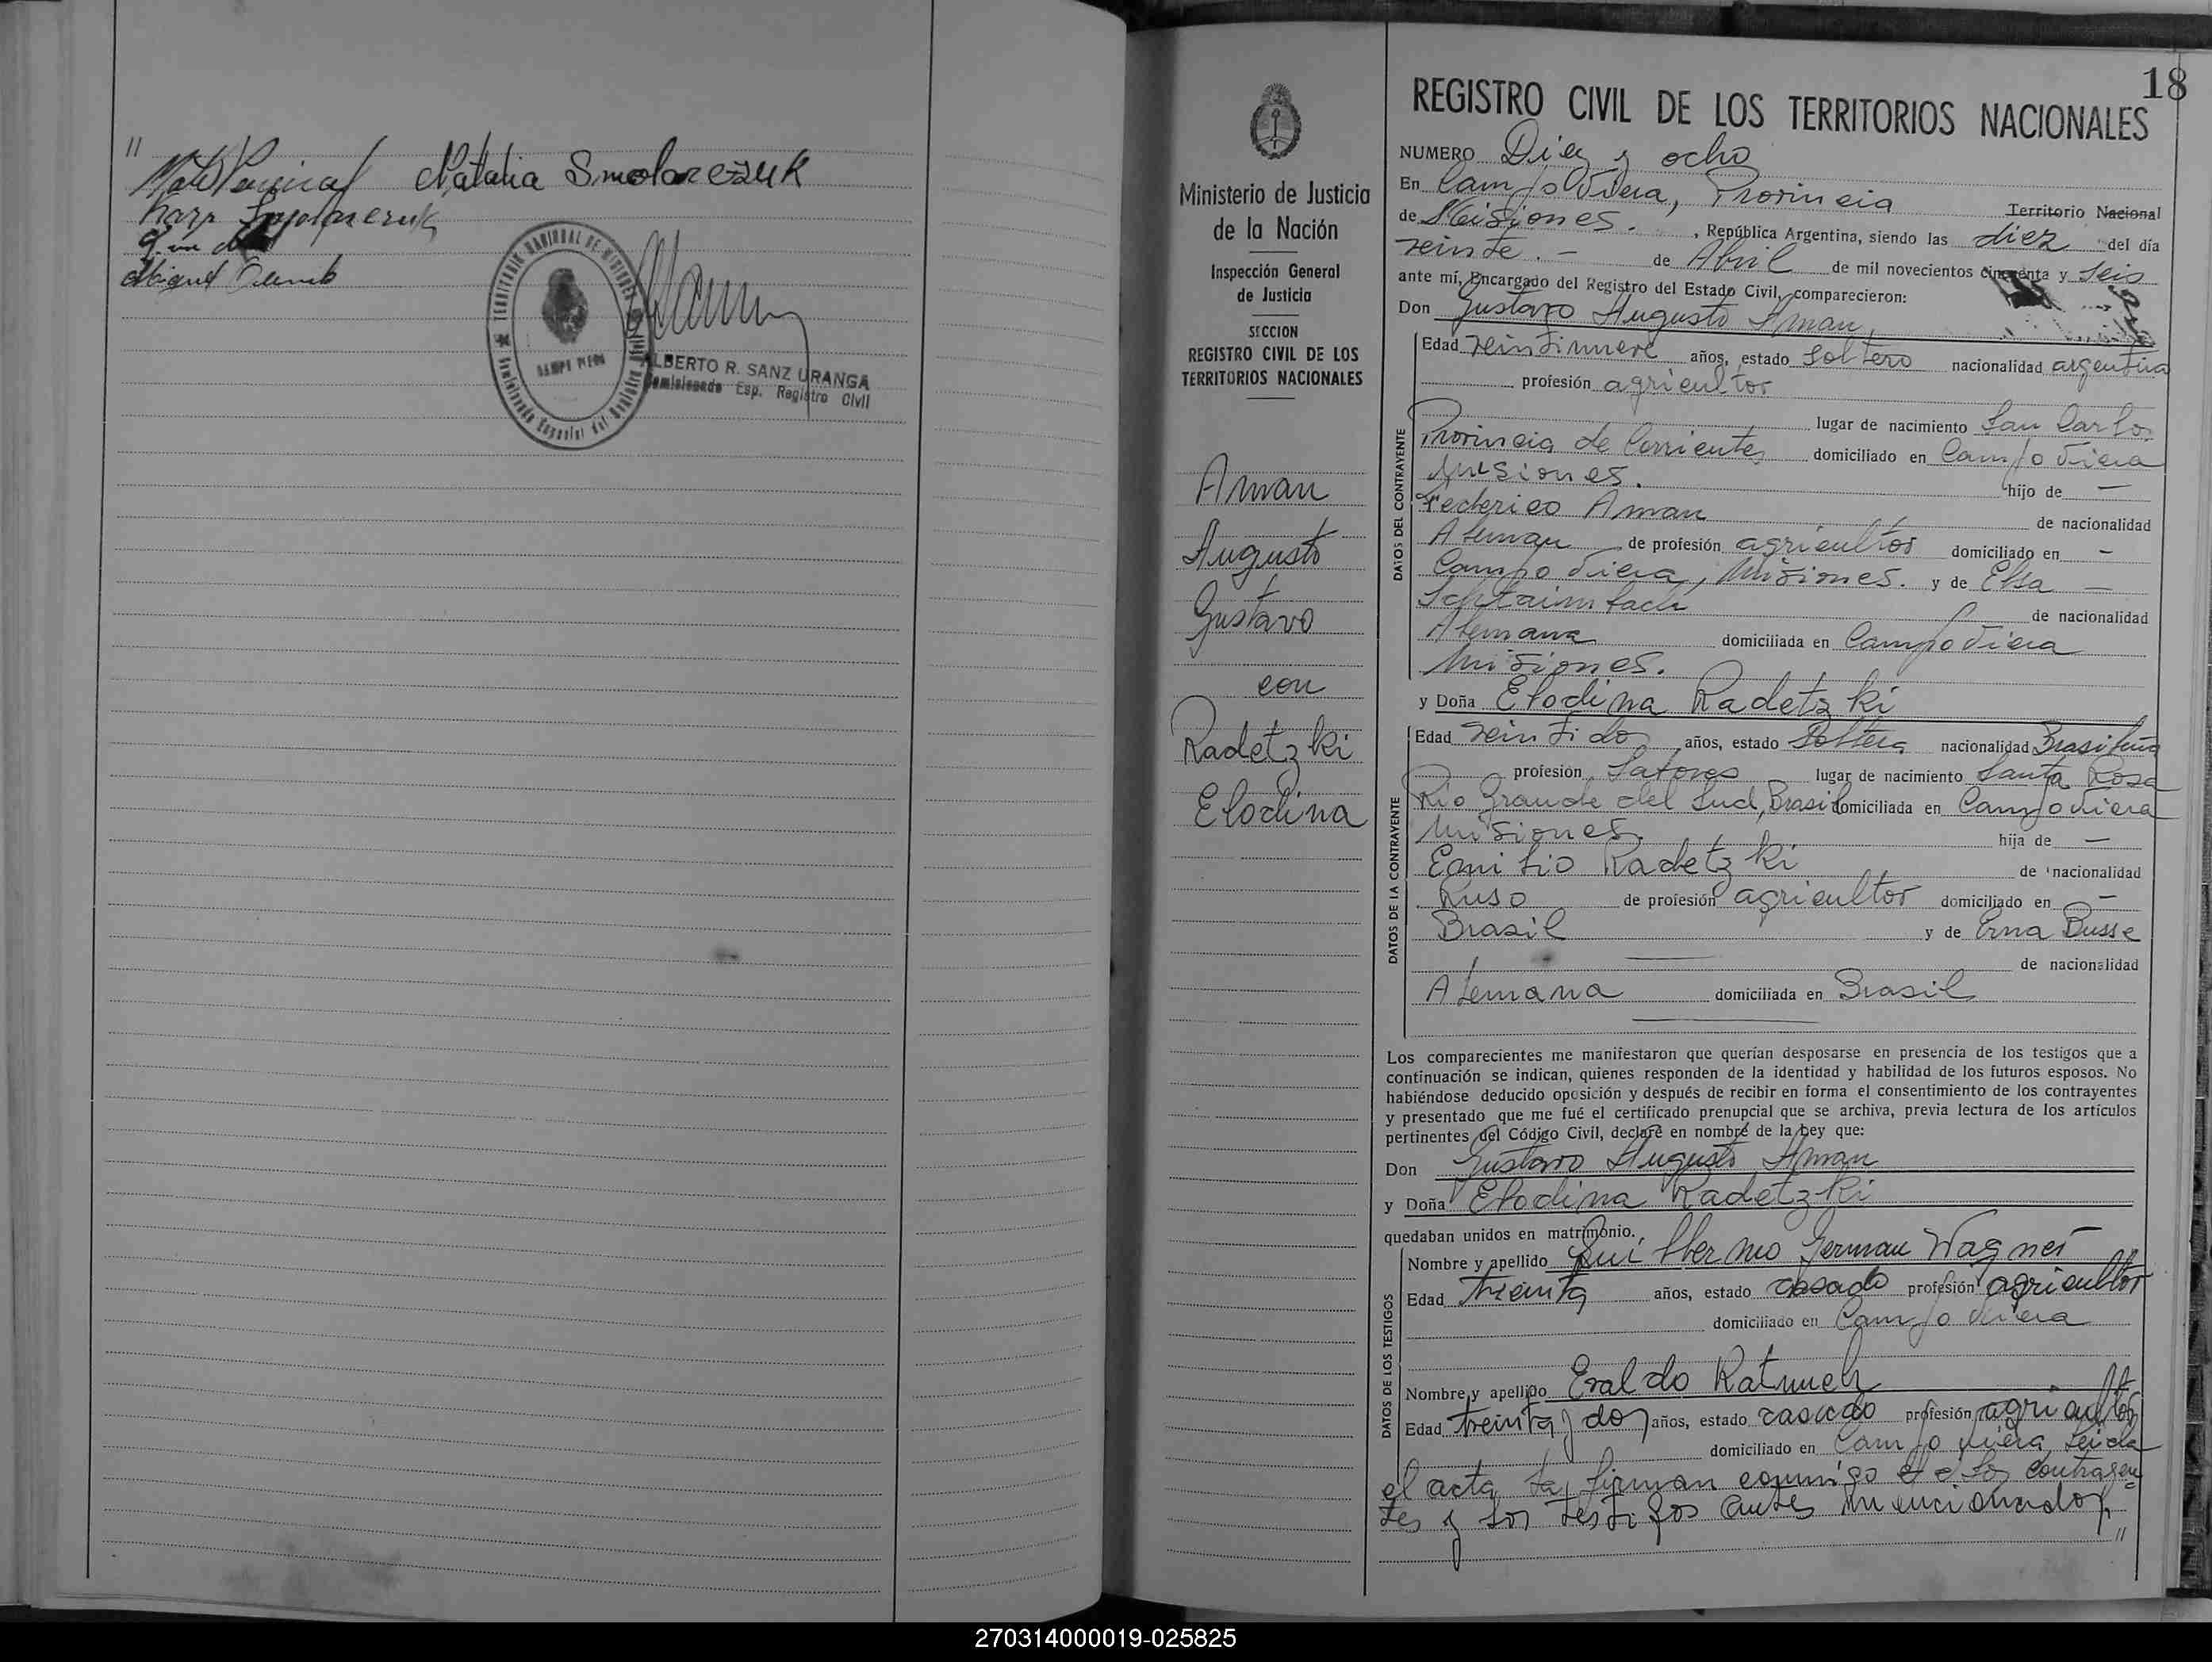 "
Natalia Smolarczuk
Miguel
CAMPO VIERA
ALBERTO R. SANZ URANGA
Comisionado Esp. Registro Civil
18
Ministerio de Justicia
de la Nación
Inspección General
de Justicia
SECCION
REGISTRO CIVIL DE LOS
TERRITORIOS NACIONALES
Aman
Augusto
Gustavo
con
Radetzki
Elodina
REGISTRO CIVIL DE LOS TERRITORIOS NACIONALES
NUMERO Diez y ocho
En Campo Viera, Provincia Territorio Nacional
de Misiones. , República Argentina, siendo las diez del día
veinte. - de Abril de mil novecientos cincuenta y seis
ante mí, Encargado del Registro del Estado Civil, comparecieron:
Don Gustavo Augusto Aman,
DATOS DEL CONTRAYENTE
Edad veintinueve años, estado soltero nacionalidad argentina
profesión agricultor
lugar de nacimiento San Carlos
Provincia de Corrientes domiciliado en Campo Viera
Misiones. hijo de —
Federico Aman de nacionalidad
Aleman de profesión agricultor domiciliado en -
Campo Viera, Misiones. y de Elsa —
de nacionalidad
Alemana domiciliada en Campo Viera
Misiones.
y Doña Elodina Radetzki
DATOS DE LA CONTRAYENTE
Edad veintidos años, estado soltera nacionalidad Brasileña
profesión Labores lugar de nacimiento Santa Rosa
Rio Grande del Sud, Brasil domiciliada en Campo Viera
Misiones. hija de —
Emilio Radetzki de nacionalidad
Ruso de profesión agricultor domiciliado en —
Brasil y de Erna Busse
de nacionalidad
Alemana domiciliada en Brasil
Los comparecientes me manifestaron que querían desposarse en presencia de los testigos que a
continuación se indican, quienes responden de la identidad y habilidad de los futuros esposos. No
habiéndose deducido oposición y después de recibir en forma el consentimiento de los contrayentes
y presentado que me fué el certificado prenupcial que se archiva, previa lectura de los artículos
pertinentes del Código Civil, declaré en nombre de la Ley que:
Don Gustavo Augusto Aman
y Doña Elodina Radetzki
quedaban unidos en matrimonio.
DATOS DE LOS TESTIGOS
Nombre y apellido Guillermo German Wagner
Edad treinta años, estado casado profesión agricultor
domiciliado en Campo Viera
Nombre y apellido Eraldo
Edad treinta y dos años, estado casado profesión agricultor
domiciliado en Campo Viera, Leida
el acta la firman conmigo los contrayen=
tes y los testigos antes mencionados,
"
270314000019-025825